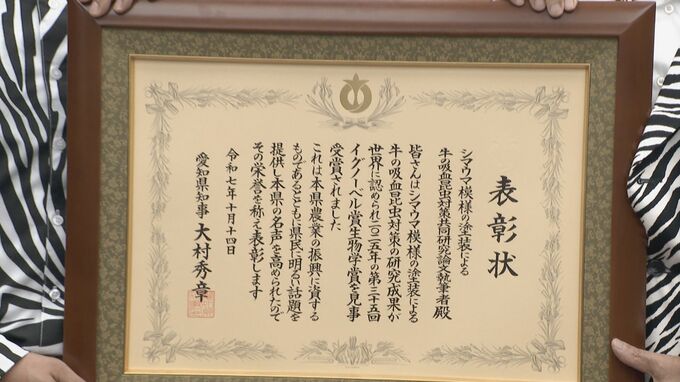 表彰状
シマウマ模様の塗装による
牛の吸血昆虫対策共同研究論文執筆者殿
皆さんはシマウマ模様の塗装による
牛の吸血昆虫対策の研究成果が
世界に認められ二〇二五年の第三十五回
イグノーベル賞生物学賞を見事
受賞されました
これは本県農業の振興に資する
ものであるとともに県民に明るい話題を
提供し本県の名声を高められたので
その栄誉を称え表彰します
令和七年十月十四日
愛知県知事 大村秀章